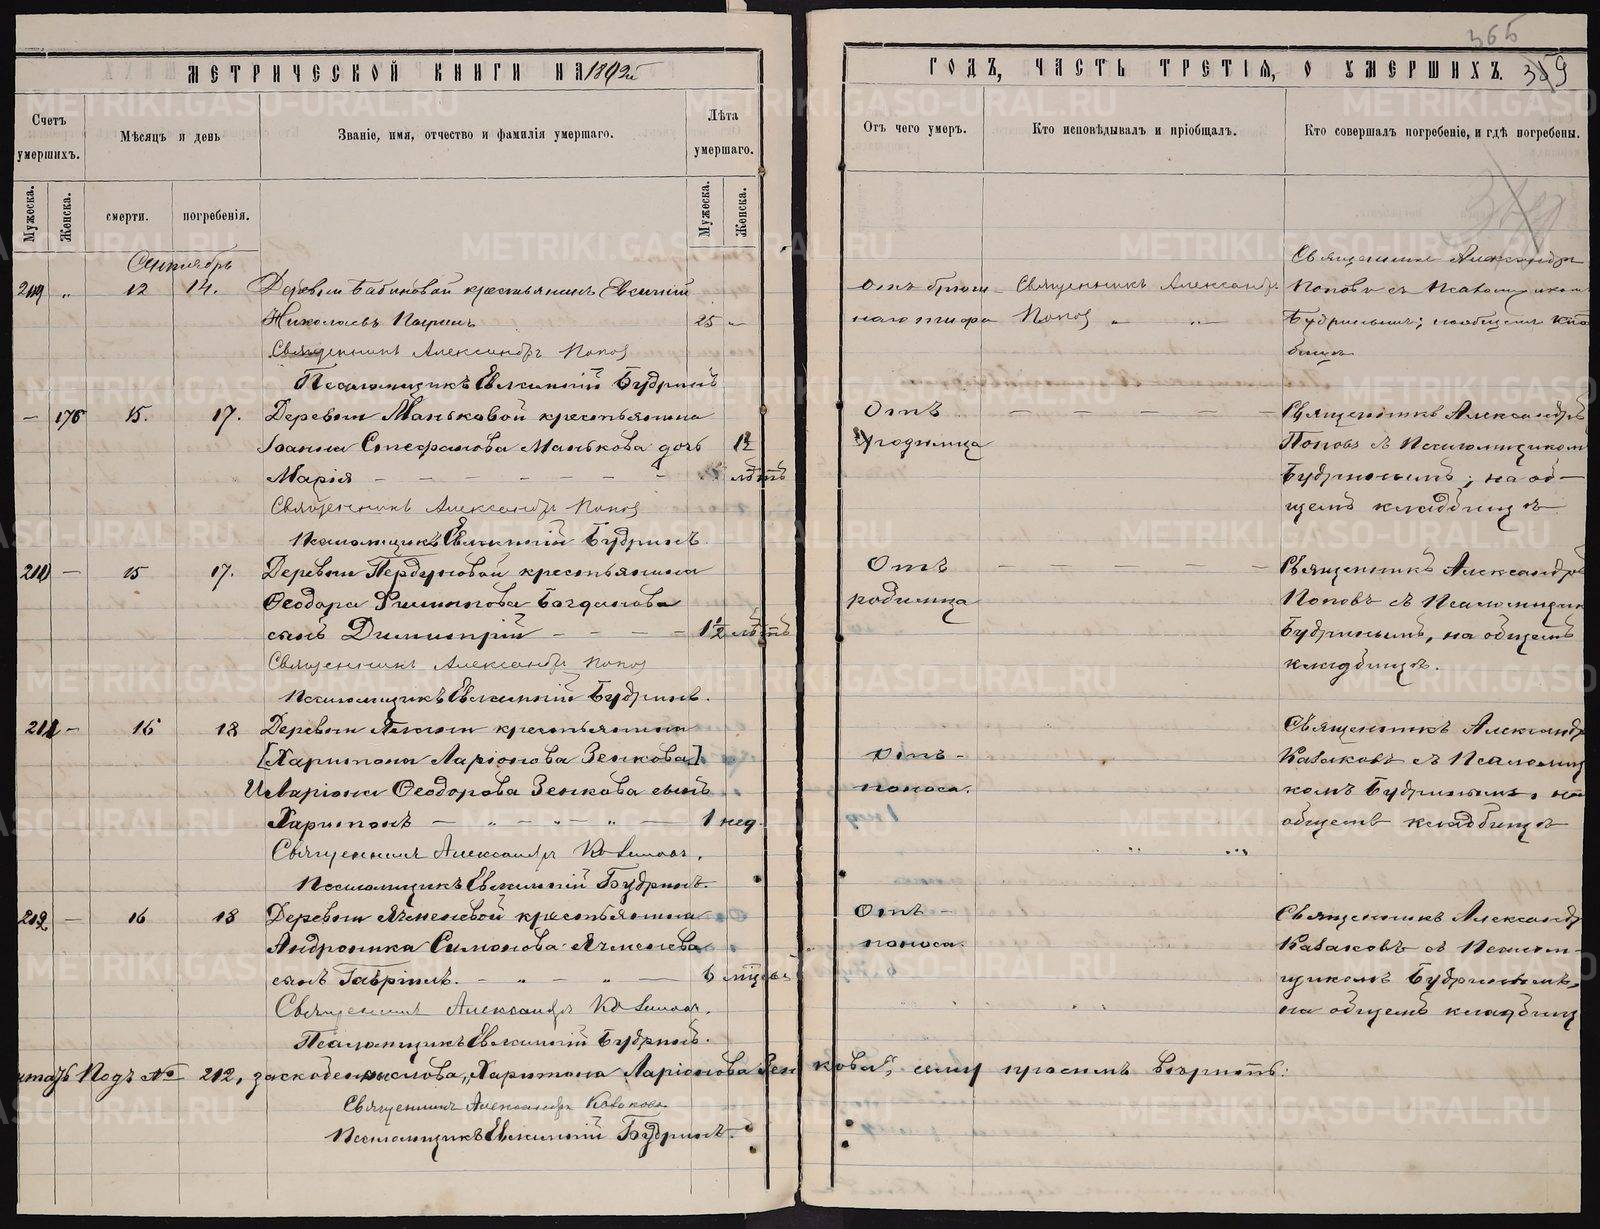 365
МЕТРИЧЕСКОЙ КНИГИ НА 1892й
ГОДЪ, ЧАСТЬ ТРЕТІЯ, О УМЕРШИХЪ. 359
Счетъ умершихъ.
Мѣсяцъ и день
Званіе, имя, отчество и фамилія умершаго.
Лѣта умершаго.
Отъ чего умеръ.
Кто исповѣдывалъ и пріобщалъ.
Кто совершалъ погребеніе, и гдѣ погребены.
Мужеска.
Женска.
смерти.
погребенія.
Мужеска.
Женска.
Сентябрь
12 14. Деревни Бабиновой крестьянинъ Евгеній
Николаевъ 25 „
Священникъ Александръ Попов
Псаломщикъ Евлампій Будринъ
Отъ брюш
наго тифа
Священникъ Александръ
Попов „ „
Священникъ Александръ
Поповъ съ Псаломщиком
Будринымъ; на общемъ клад
бищѣ
— 176 15. 17. Деревни Маньковой крестьянина
Іоанна Стефанова Манькова дочь
Марія — — — — — — лѣтъ
Священникъ Александръ Попов
Псаломщикъ Евлампій Будринъ.
Отъ
родимца
Священникъ Александръ
Поповъ съ Псаломщиком
Будринымъ; на об—
щемъ кладбищѣ
210 — 15 17. Деревни Пердуновой крестьянина
Ѳеодора Филиппова Богданова
сынъ Димитрій — — — — 1½ лѣтъ
Священникъ Александръ Попов
Псаломщикъ Евлампій Будринъ.
Отъ
родимца
Священникъ Александръ
Поповъ съ Псаломщик
Будринымъ, на общемъ
кладбищѣ.
211 — 16 18 Деревни крестьянина
[Харитона Ларіонова Зенкова]
Иларіона Ѳеодорова Зенкова сынъ
Харитонъ — „ — „ — „ — 1 нед.
Священникъ Александръ Казаковъ.
Псаломщикъ Евлампій Будринъ.
Отъ —
поноса.
Священникъ Александр
Казаковъ съ Псаломщи
комъ Будринымъ, на
общемъ кладбищѣ
212 — 16 18 Деревни Ячменевой крестьянина
Андроника Симонова Ячменева
сынъ Гавріилъ. — „ — „ — 6 мѣсяц
Священникъ Александръ Казаковъ.
Псаломщикъ Евлампій Будринъ.
Отъ —
поноса.
Священникъ Александр
Казаковъ съ Псалом—
щикомъ Будринымъ,
на общемъ кладбищ
Подъ № 212, слова „Харитона Ларіонова Зенкова", симу просимъ вѣрить:
Священникъ Александръ Казаковъ
Псаломщикъ Евлампій Будринъ.
METRIKI.GASO-URAL.RU